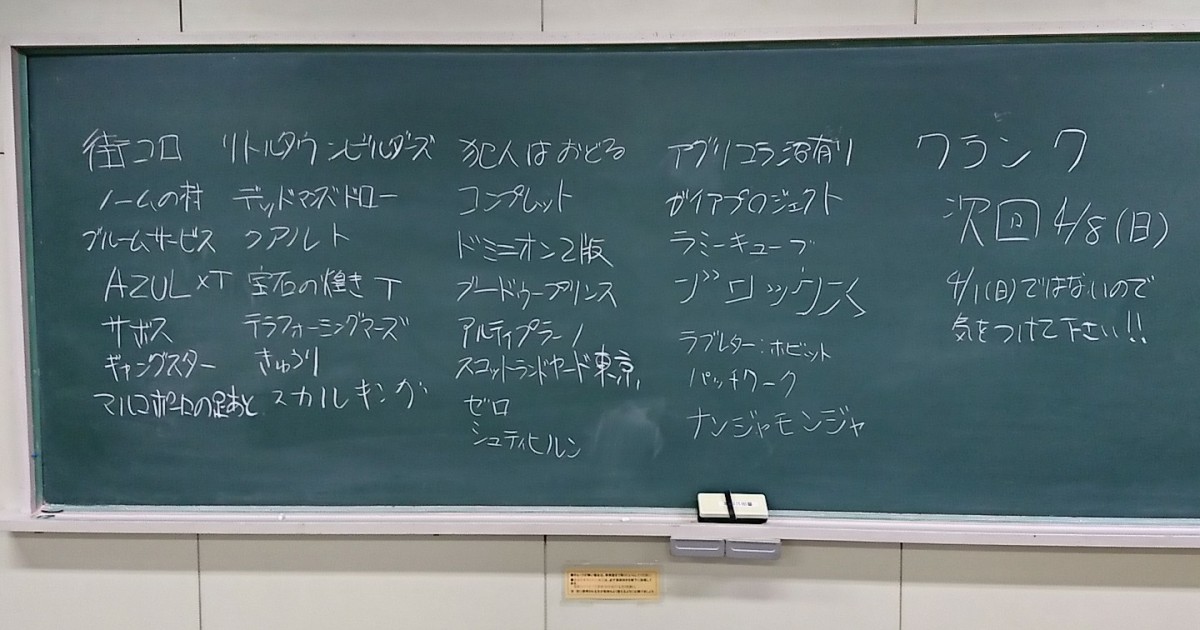 街コロ
ノームの村
ブルームサービス
AZUL×T
サボス
ギャングスター
マルコポーロの足あと
リトルタウンビルダーズ
デッドマンズドロー
クアルト
宝石の煌き T
テラフォーミングマーズ
きゅうり
スカルキング
犯人はおどる
コンプレット
ドミニオン2版
ブードゥープリンス
アルティプラーノ
スコットランドヤード東京
ゼロ
シュティヒルン
アグリコラ沼有り
ガイアプロジェクト
ラミーキューブ
ラブレター:ホビット
パッチワーク
ナンジャモンジャ
クランク
次回 4/8(日)
4/1(日)ではないので
気をつけて下さい!!